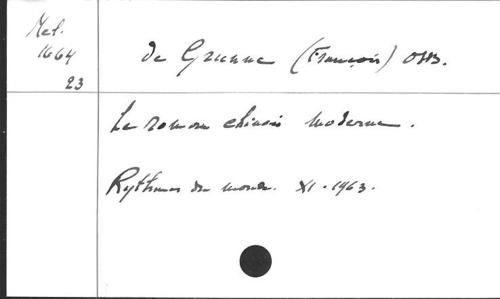 Mel.
1664
23
de Grunne (François) OSB.
Le roman chinois moderne.
Rythmes du monde. XI. 1963.